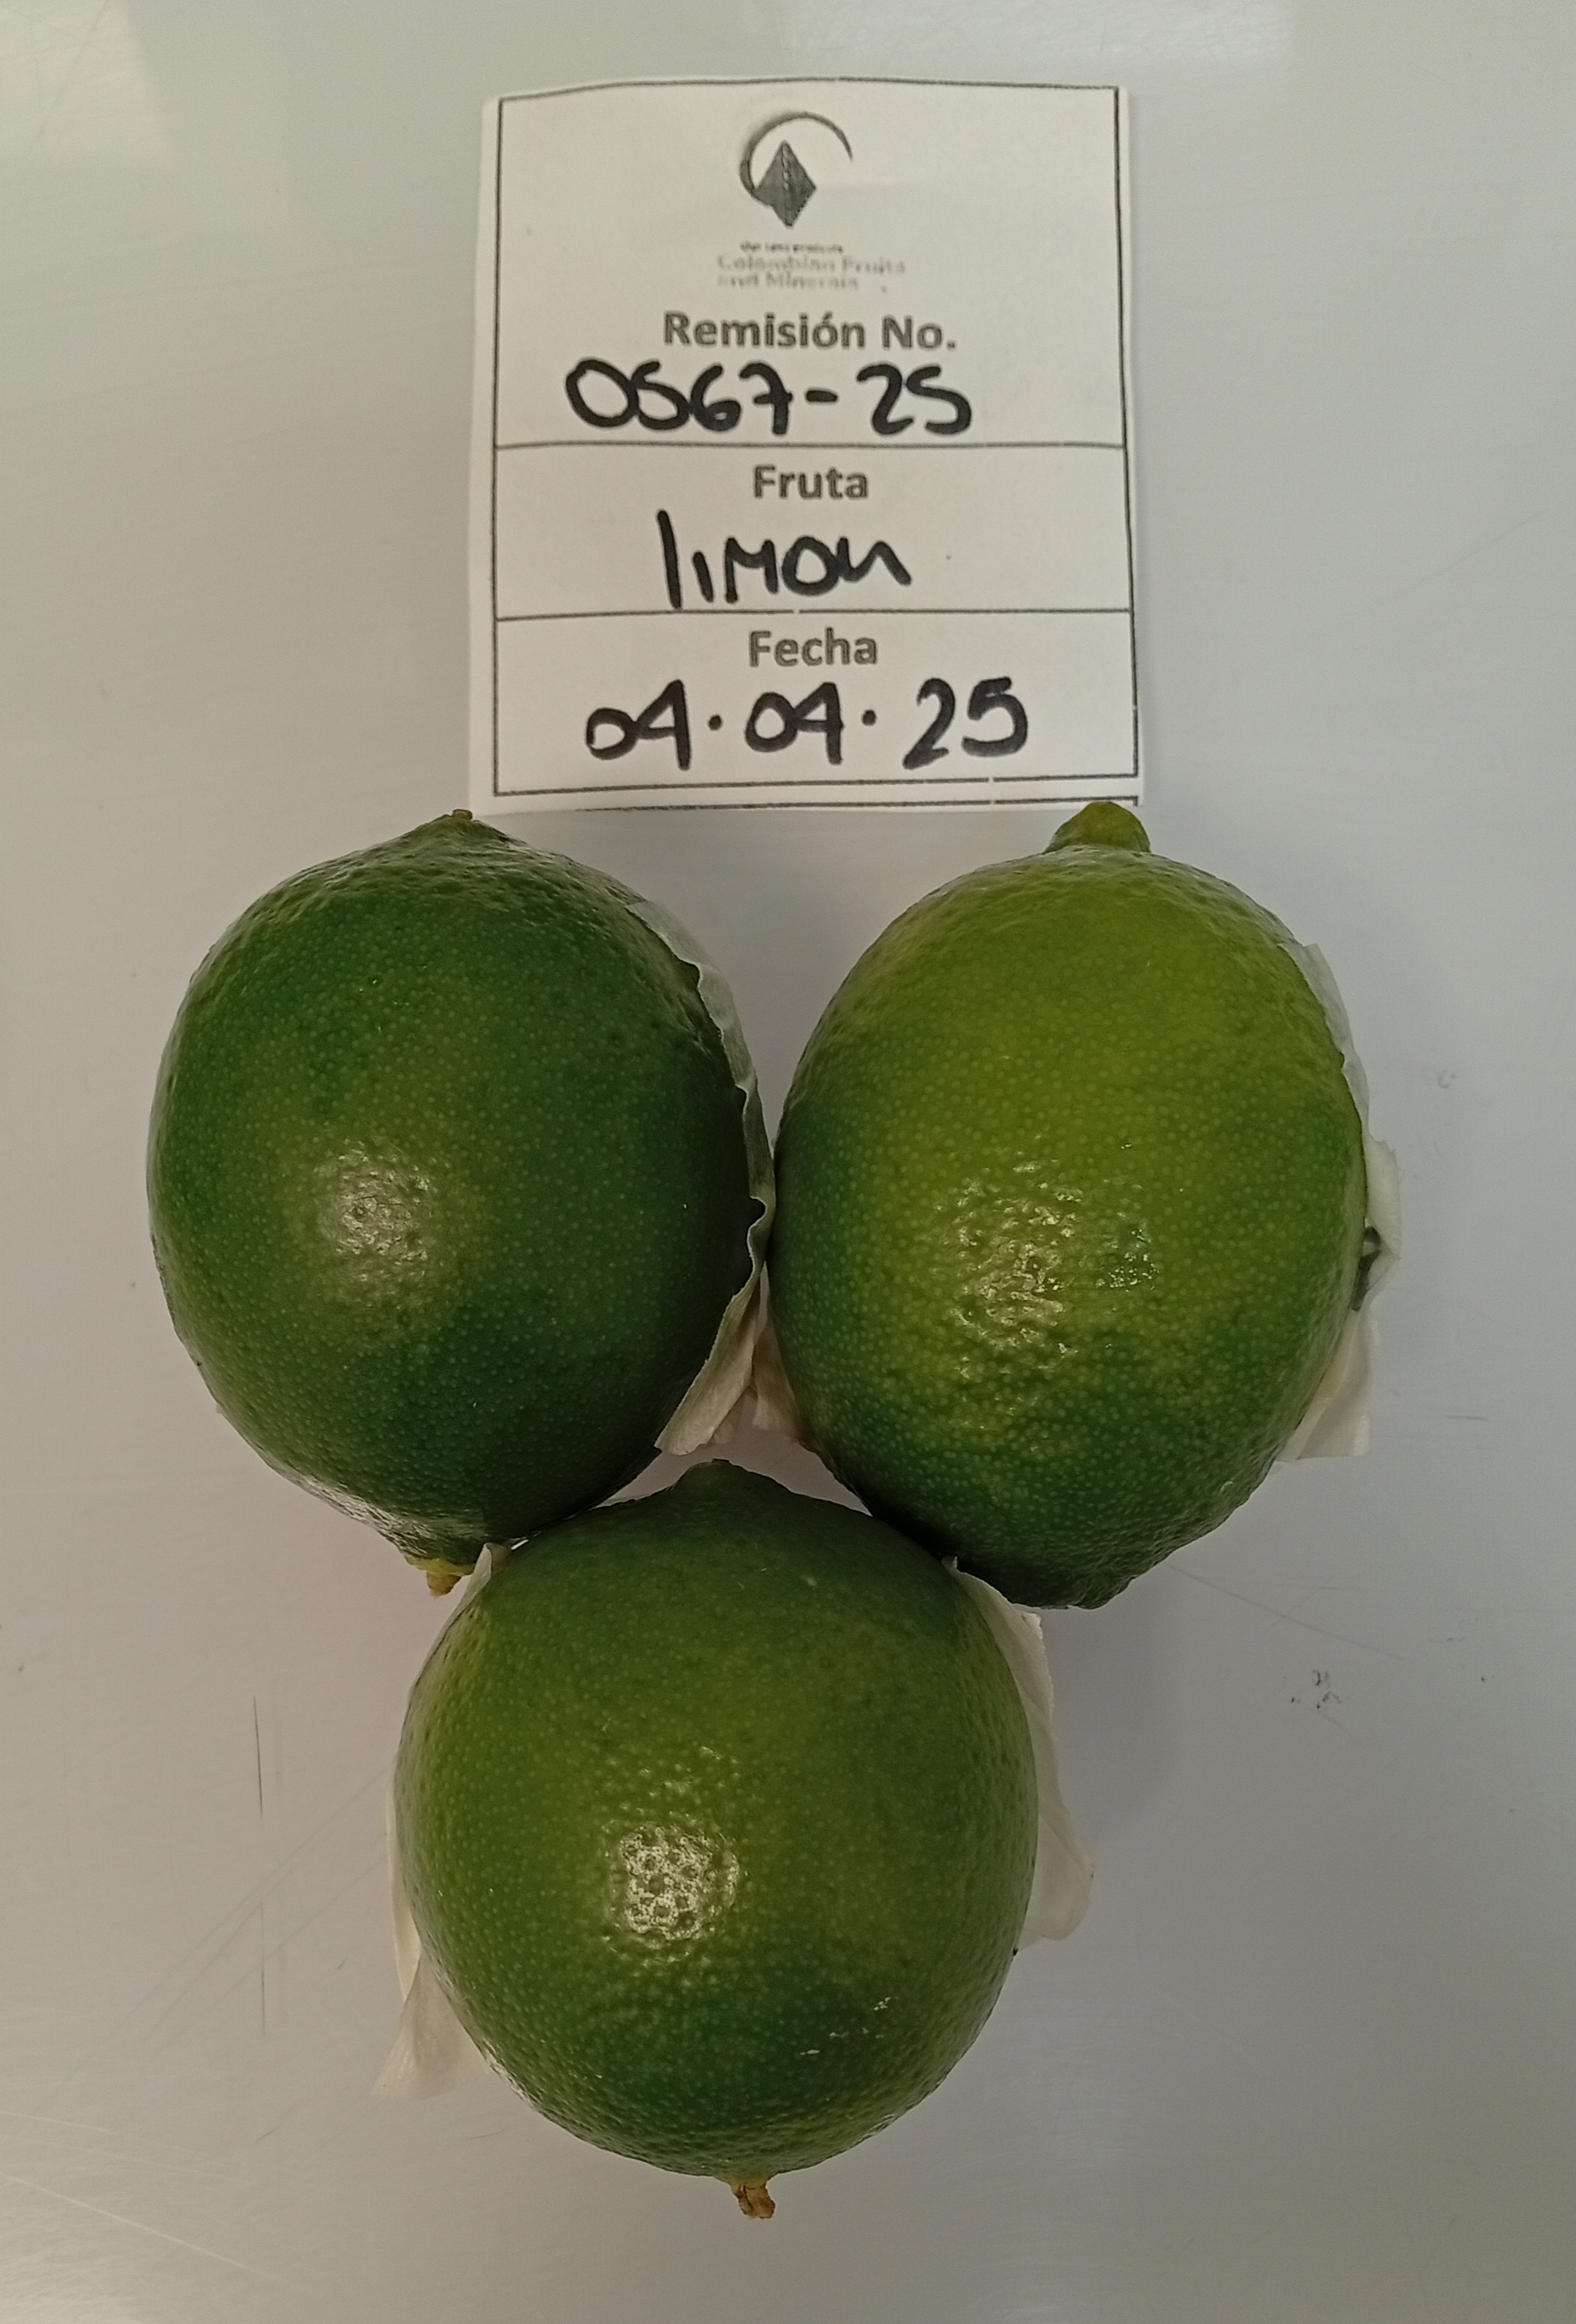 Colombian Fruits
and Minerals
Remisión No.
0567-25
Fruta
limon
Fecha
04.04.25